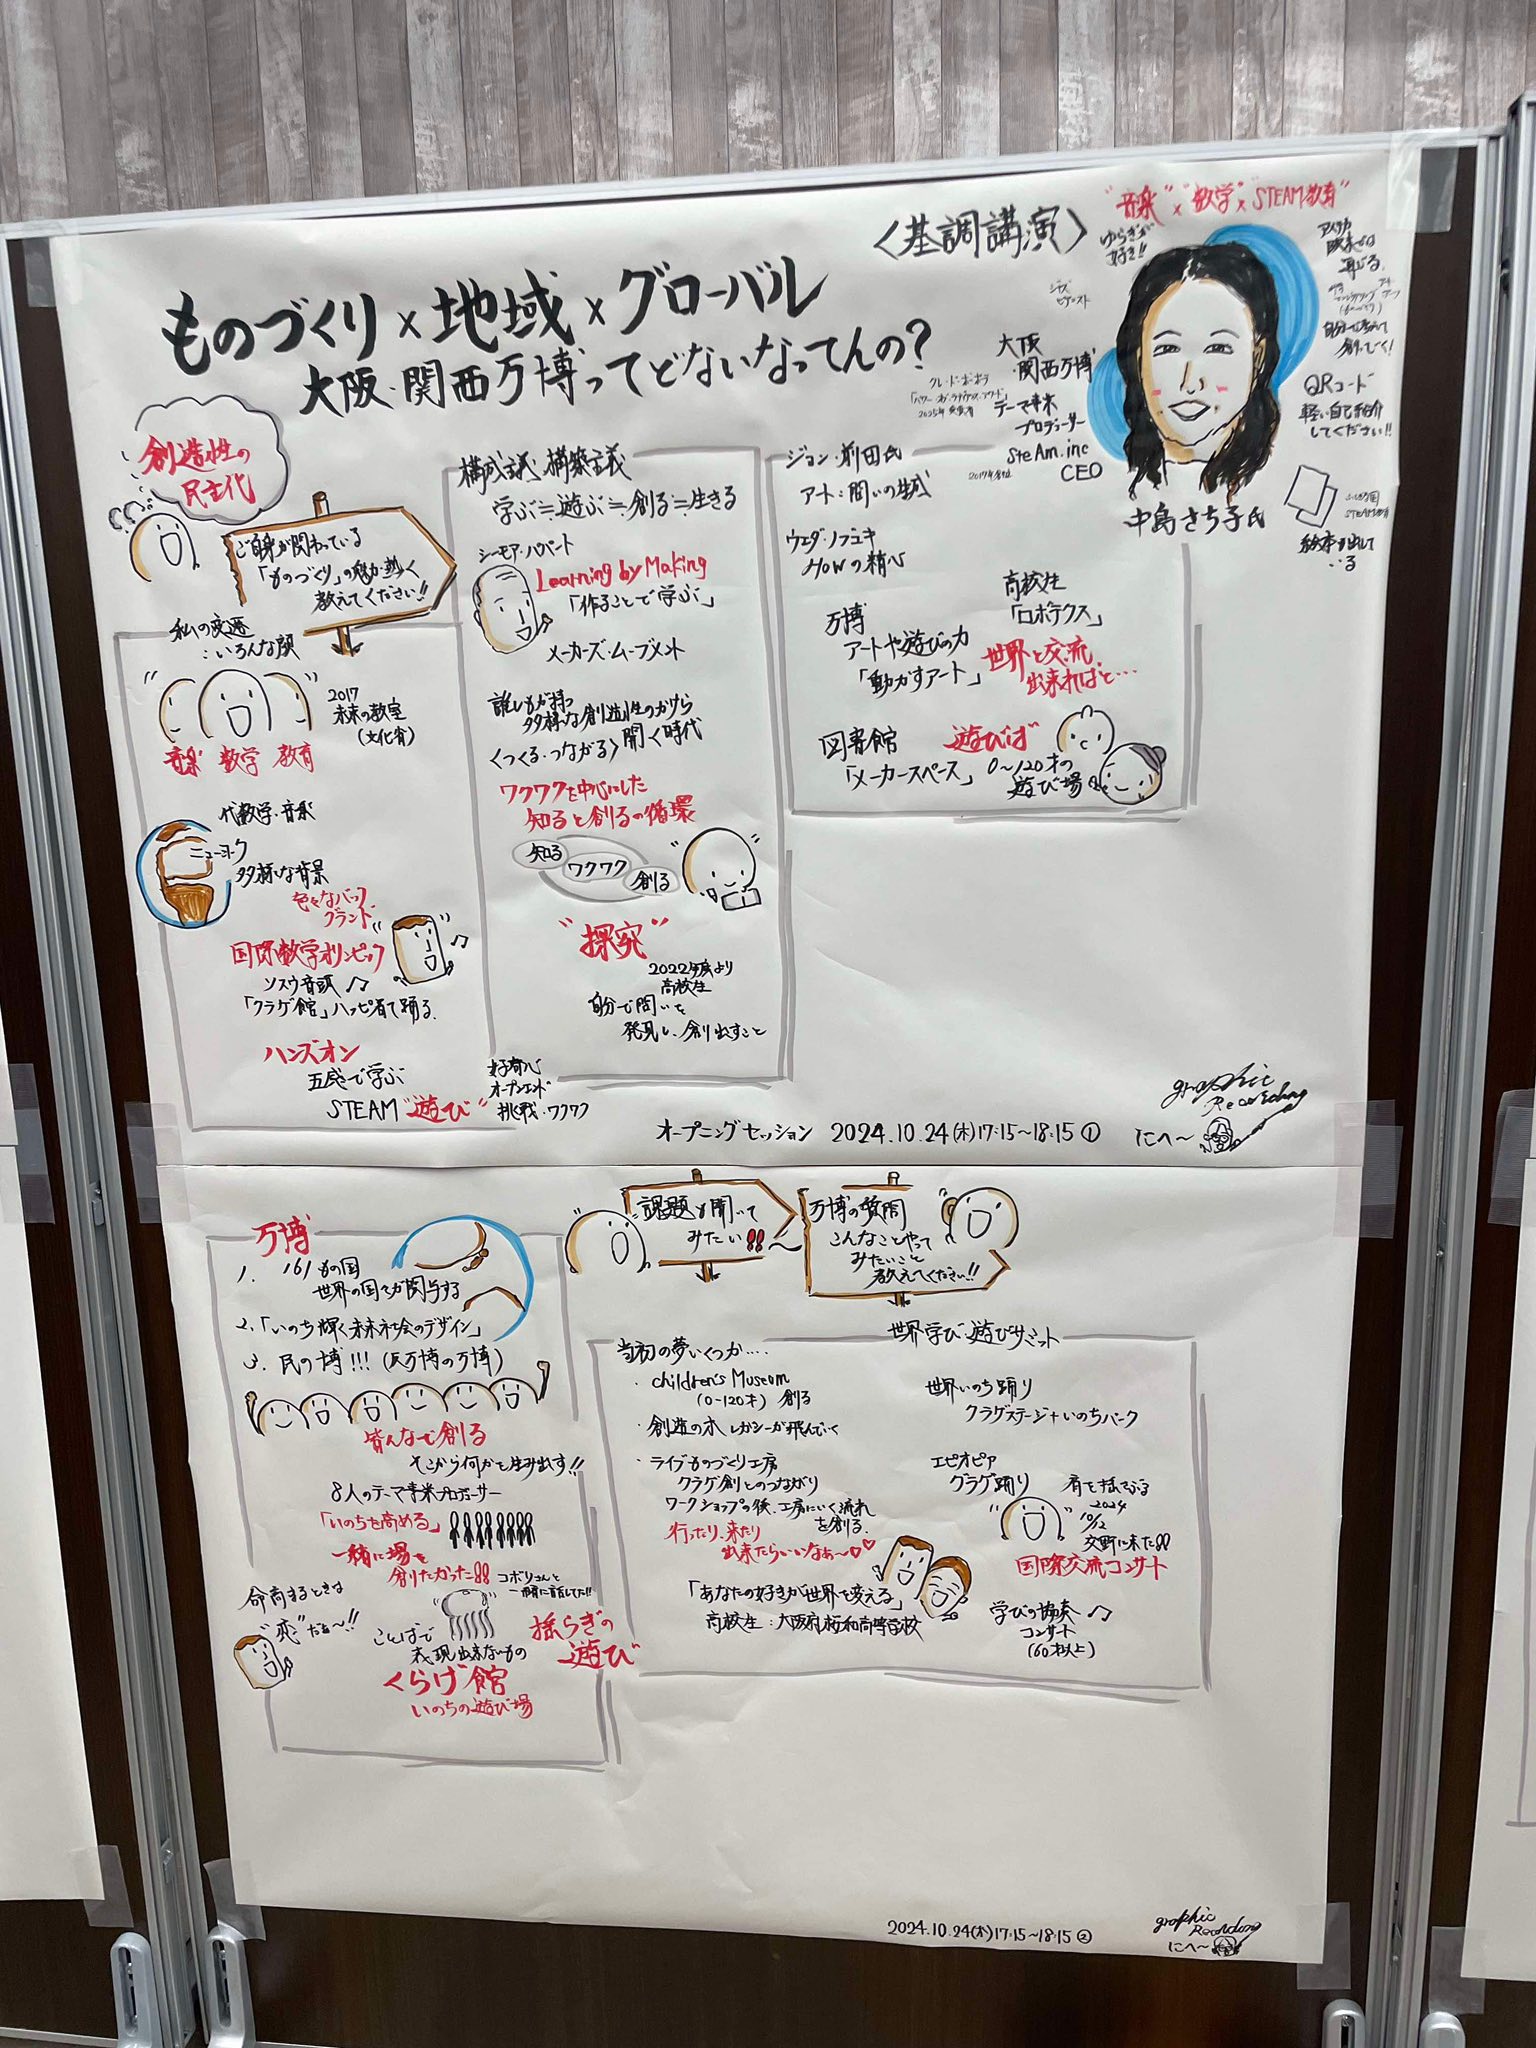 〈基調講演〉
ものづくり×地域×グローバル
大阪・関西万博ってどないなってんの?
"音楽"×"数学"×"STEAM教育"
ゆらぎが
好き!!
ジャズ
ピアニスト
大阪
・関西万博
テーマ事業
プロデューサー
steAm.inc
CEO
中島さち子氏
自分で考えて
創っていく!
QRコード
軽い自己紹介
してください!!
STEAM教育
絵本も出して
いる
創造性の
民主化
ご自身が関わっている
「ものづくり」の魅力熱く
教えてください!!
私の変遷
:いろんな顔
2017
未来の教室
音楽 数学 教育
代数学・音楽
ニューヨーク
多様な背景
色々なバック
グランド
国際数学オリンピック
ソスウ音頭♪
「クラゲ館」ハッピ着て踊る
ハンズオン
五感で学ぶ
STEAM"遊び"
好奇心
オープンエンド
挑戦・ワクワク
構成主義・構築主義
学ぶ≒遊ぶ≒創る≒生きる
シーモア・パパート
Learning by Making
「作ることで学ぶ」
メーカーズ・ムーブメント
誰しもが持つ
多様な創造性のかけら
〈つくる・つながる〉開く時代
ワクワクを中心にした
知ると創るの循環
知る
ワクワク
創る
"探究"
2022年度より
高校生
自分で問いを
発見し、創り出すこと
ジョン・前田氏
アート:問いの生成
ウエダ・ノブユキ
HOWの精神
万博
アートや遊びの力
「動かすアート」
高校生
「ロボテクス」
世界と交流
出来ればと…
図書館
「メーカースペース」
遊びば
0～120才の
遊び場
オープニングセッション 2024.10.24(木)17:15～18:15①
graphic
Recording
にへ～
万博
1. 161もの国
世界の国々が関与する
2.「いのち輝く未来社会のデザイン」
3. 民の博!!!(反万博の万博)
皆んなで創る
そこから何かを生み出す!!
8人のテーマ事業プロデューサー
「いのちを高める」
一緒に場を
創りたかった!!
コボリさんと
一緒に話してた!!
命高まるときは
"恋"だぁ～!!
ことばで
表現出来ないもの
くらげ館
いのちの遊び場
揺らぎの
遊び
課題も聞いて
みたい!!～
万博の質問
こんなことやって
みたいこと
教えてください!!
世界学び・遊びサミット
当初の夢いくつか….
・children's Museum
(0-120才) 創る
・創造の木 レガシーが飛んでいく
・ライブものづくり工房
クラゲ創とのつながり
ワークショップの後、工房にいく流れ
を創る.
行ったり、来たり
出来たらいいなぁ～♡♡
「あなたの好きが世界を変える」
世界いのち踊り
クラゲステージ+いのちパーク
エピオピア
クラゲ踊り
肩を揺さぶる
2024
10/12
交野に来た!!
国際交流コンサート
学びの協奏♪
コンサート
(60才以上)
2024.10.24(木)17:15～18:15②
graphic
Recording
にへ～